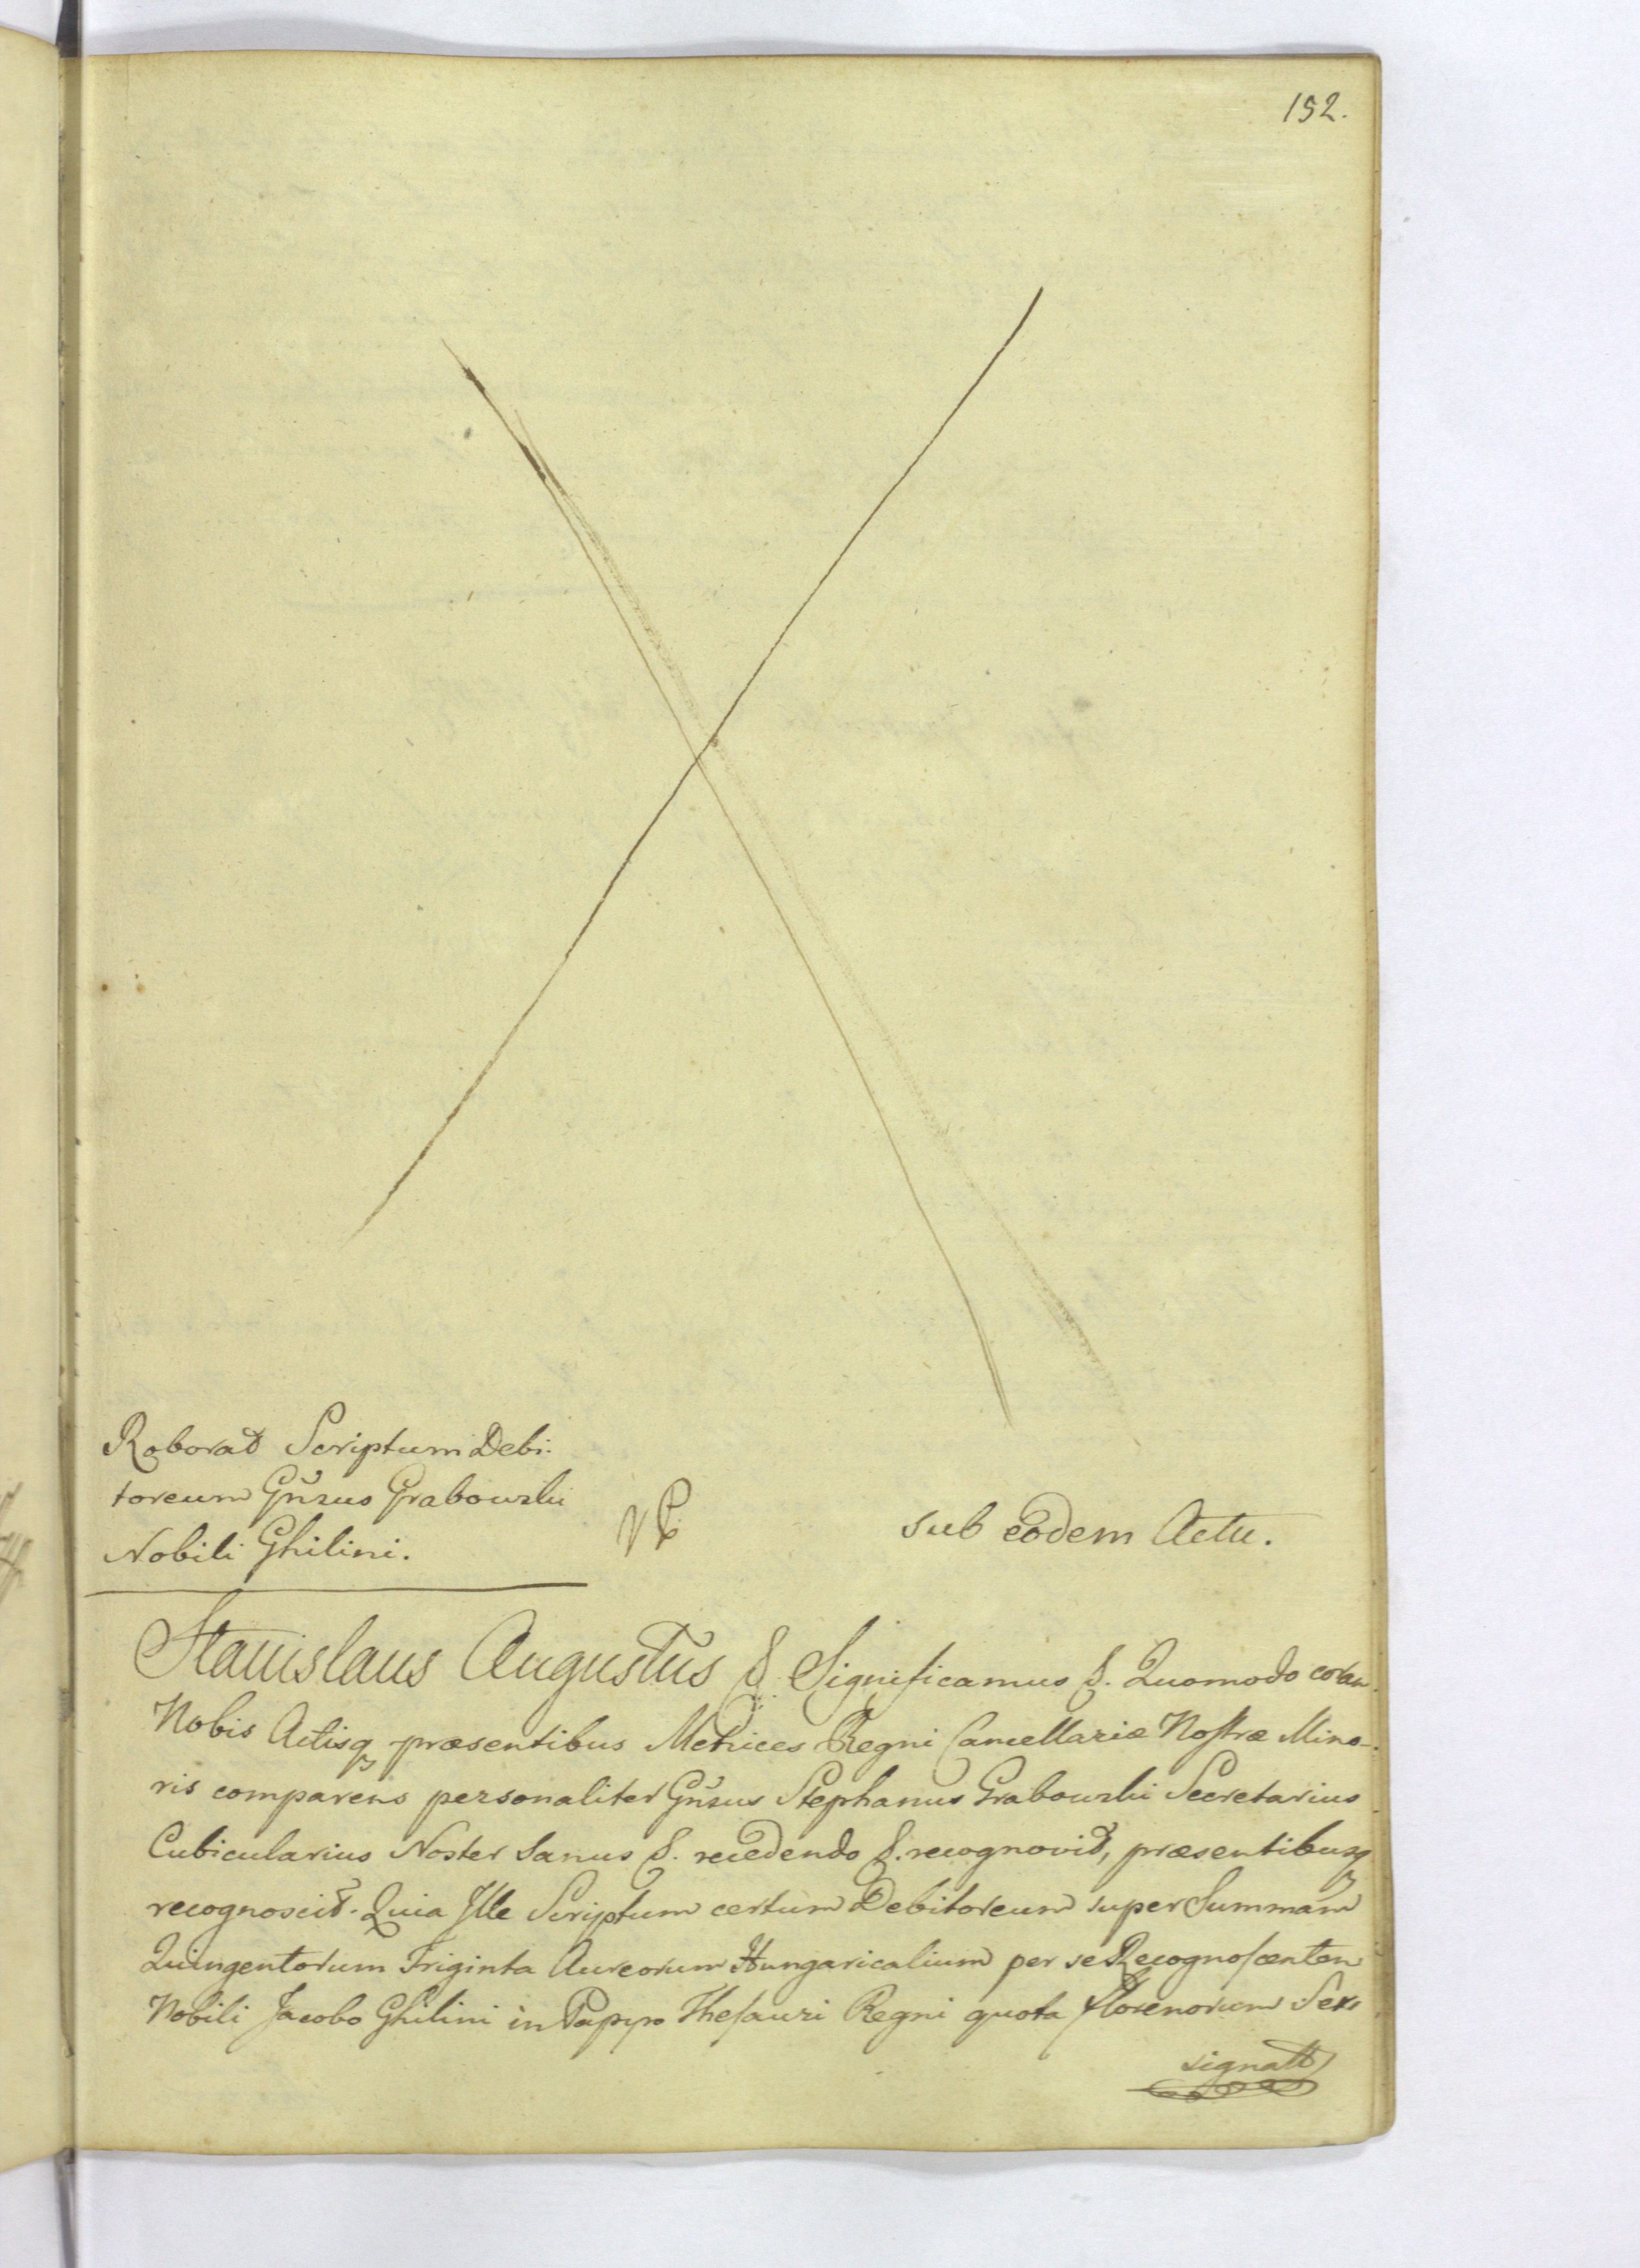 152.
Roborat Scriptum Debi:
toreum Gn̄sus Grabowski
Nobili Ghilini.
sub eodem Actu.
Stanislaus Augustus &. Significamus &. Quomodo coram
Nobis Actisq præsentibus Metrices Regni Cancellariæ Nostræ Mino-
ris comparens personaliter Gn̄sus Stephanus Grabowski Secretarius
Cubicularius Noster Sanus &. recedendo &. recognovit, præsentibusq
recognoscit. Quia Ille Scriptum certum Debitoreum super Summam
Quingentorum Triginta Aureorum Hungaricalium per se Recognoscenten
Nobili Jacobo Ghilini in Papyro Thesauri Regni quota florenorum Sex
signatt